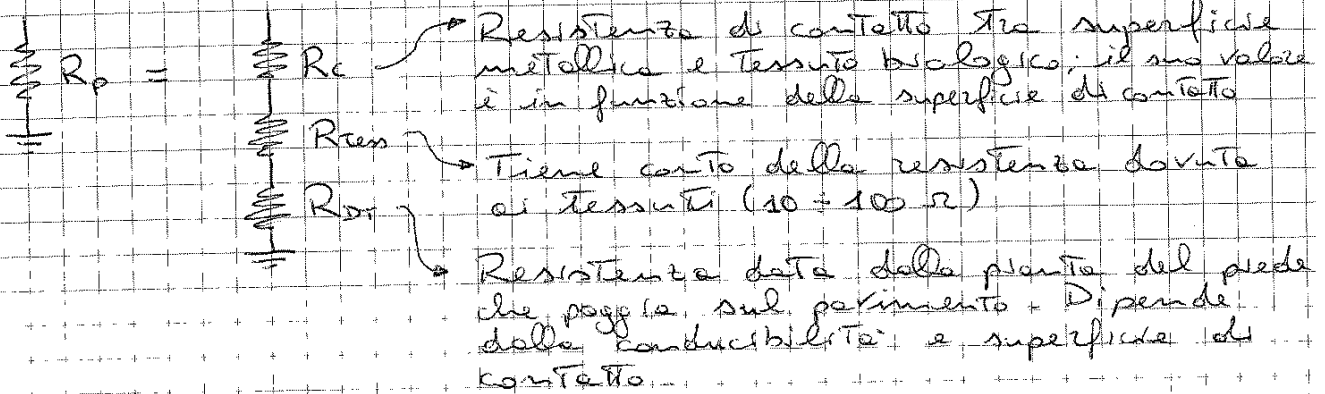 Rp = Rc Resistenza di contatto tra superficie
metallica e tessuto biologico; il suo valore
è in funzione della superficie di contatto
RTess Tiene conto della resistenza dovuta
ai tessuti (10 ÷ 100 Ω)
RDT Resistenza data dalla pianta del piede
che poggia sul pavimento. Dipende
dalla conducibilità e superficie di
contatto